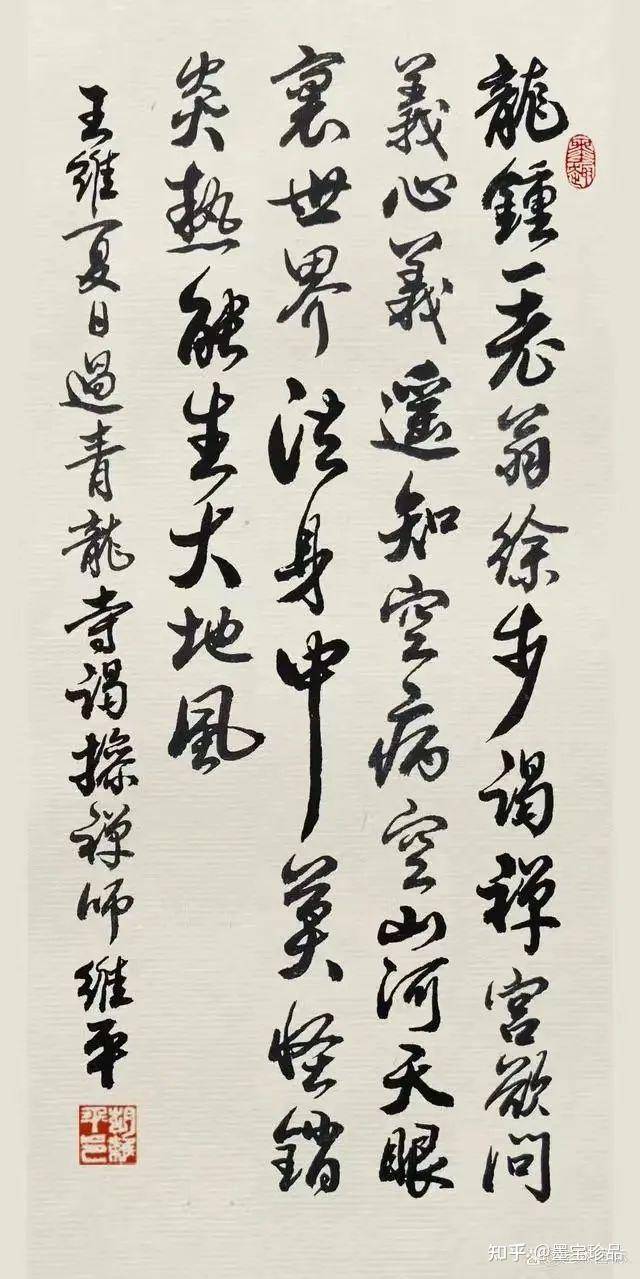 龍鍾一老翁徐步謁禅宮欲問
義心義遥知空病空山河天眼
裏世界法身中莫怪銷
炎熱能生大地風
王維夏日過青龍寺謁操禅師維平
知乎 @墨宝珍品